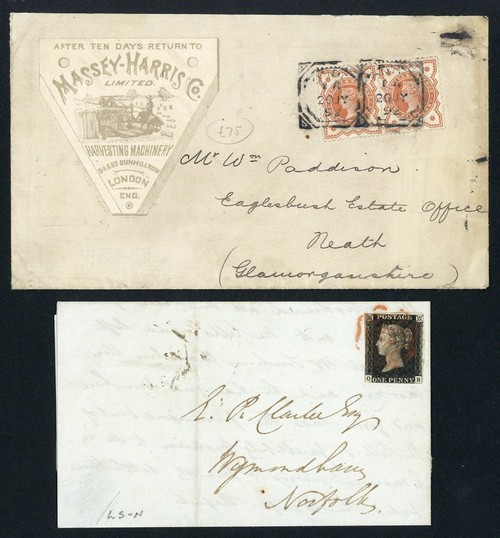 AFTER TEN DAYS RETURN TO
MASSEY-HARRIS Co.
LIMITED.
HARVESTING MACHINERY
LONDON
ENG.
£75
Mr Wm Paddison
Eaglesbush Estate Office
Neath
(Glamorganshire)
POSTAGE
ONE PENNY
E. P. Clarke Esq
Wymondham
Norfolk